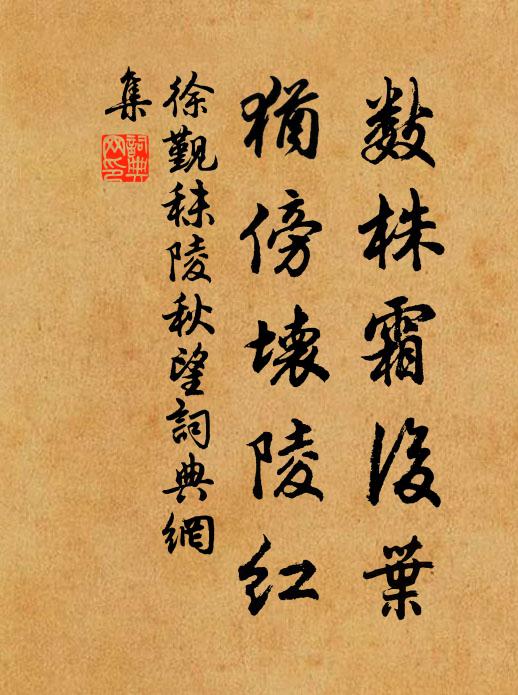 數株霜後葉
猶傍壞陵紅
徐觀秣陵秋望詞典網
集
詞典
网印